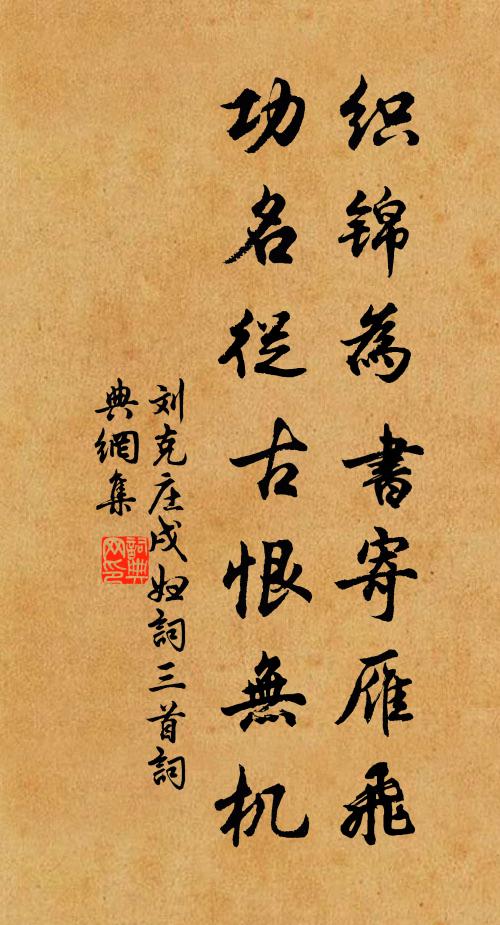 织锦為書寄雁飛
功名從古恨無机
刘克庄戍妇詞三首詞
典網集
詞典网印